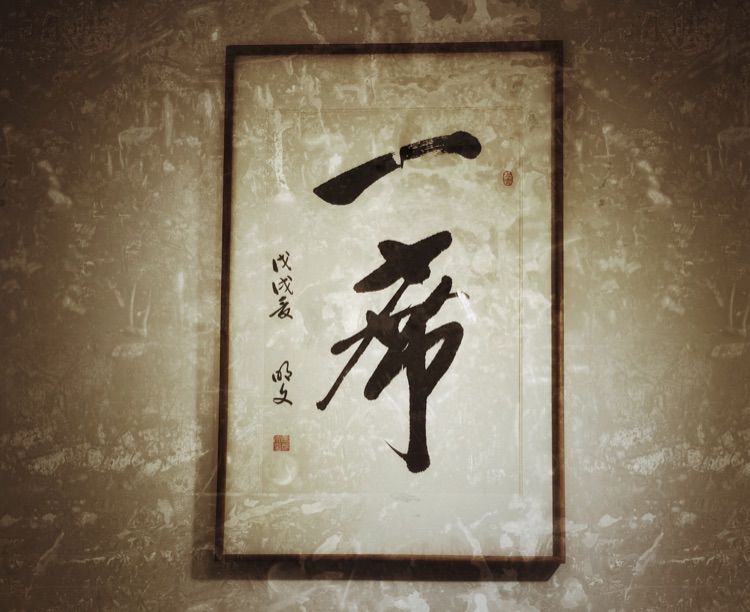 一席
戊戌夏 明文